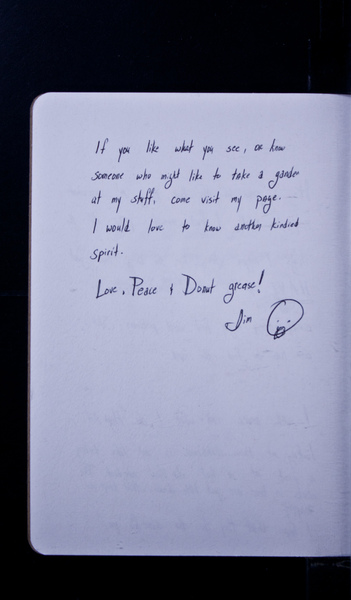 If you like what you see, or know
someone who might like to take a gander
at my stuff, come visit my page.
I would love to know another kindred
spirit.
Love, Peace & Donut grease!
Jim